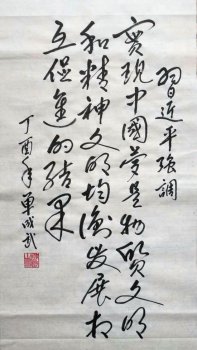 習近平强調
實現中國夢是物質文明
和精神文明均衡發展相
互促進的結果
丁酉年